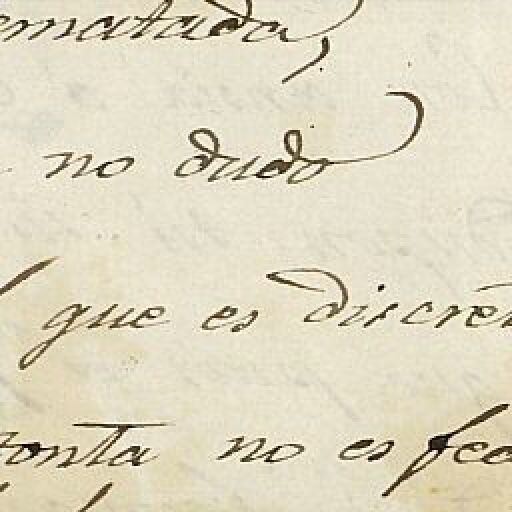 ematada,
no dudo
que es discret
tonta no es fea